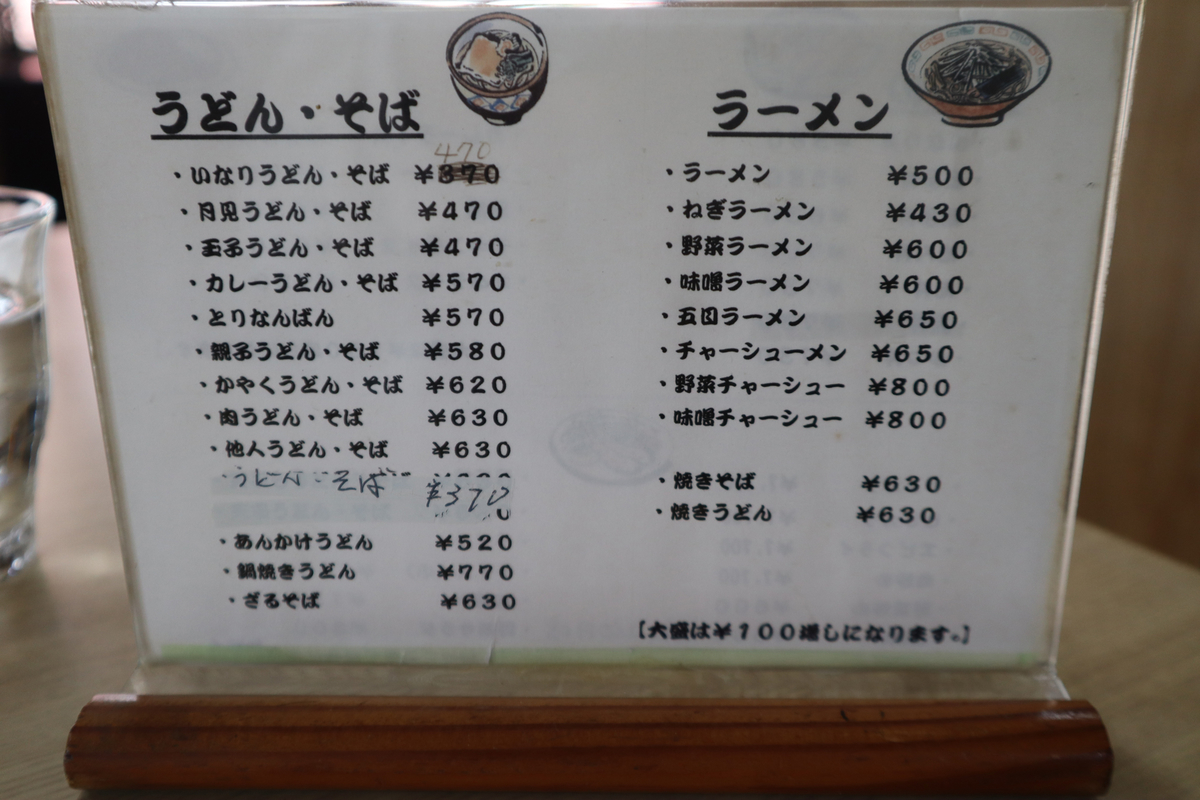 うどん・そば
470
・いなりうどん・そば ¥370
・月見うどん・そば ¥470
・玉子うどん・そば ¥470
・カレーうどん・そば ¥570
・とりなんばん ¥570
・親子うどん・そば ¥580
・かやくうどん・そば ¥620
・肉うどん・そば ¥630
・他人うどん・そば ¥630
・うどん・そば ¥370
・あんかけうどん ¥520
・鍋焼きうどん ¥770
・ざるそば ¥630
ラーメン
・ラーメン ¥500
・ねぎラーメン ¥430
・野菜ラーメン ¥600
・味噌ラーメン ¥600
・五目ラーメン ¥650
・チャーシューメン ¥650
・野菜チャーシュー ¥800
・味噌チャーシュー ¥800
・焼きそば ¥630
・焼きうどん ¥630
【大盛は¥100増しになります。】